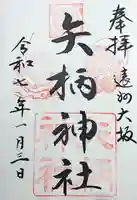 奉拝 遠州大坂
矢柄神社
令和七年一月三日